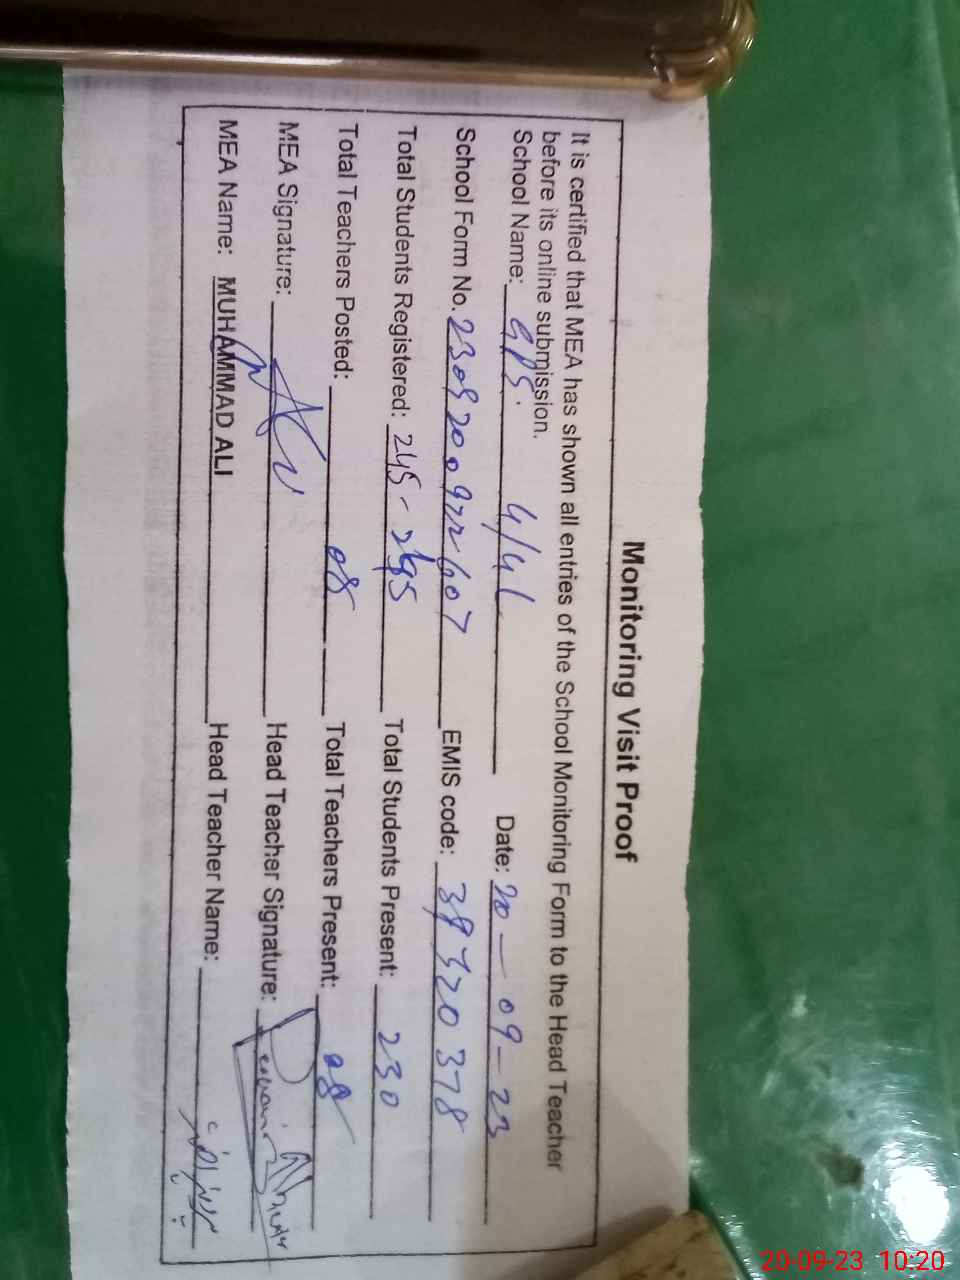 Monitoring Visit Proof
It is certified that MEA has shown all entries of the School Monitoring Form to the Head Teacher
before its online submission.
School Name: GPS. 4/4L Date: 20-09-23
School Form No. 2309200922607 EMIS code: 39320378
Total Students Registered: 245-245 Total Students Present: 230
Total Teachers Posted: 08 Total Teachers Present: 08
MEA Signature: Head Teacher Signature:
MEA Name: MUHAMMAD ALI Head Teacher Name:
20-09-23 10:20